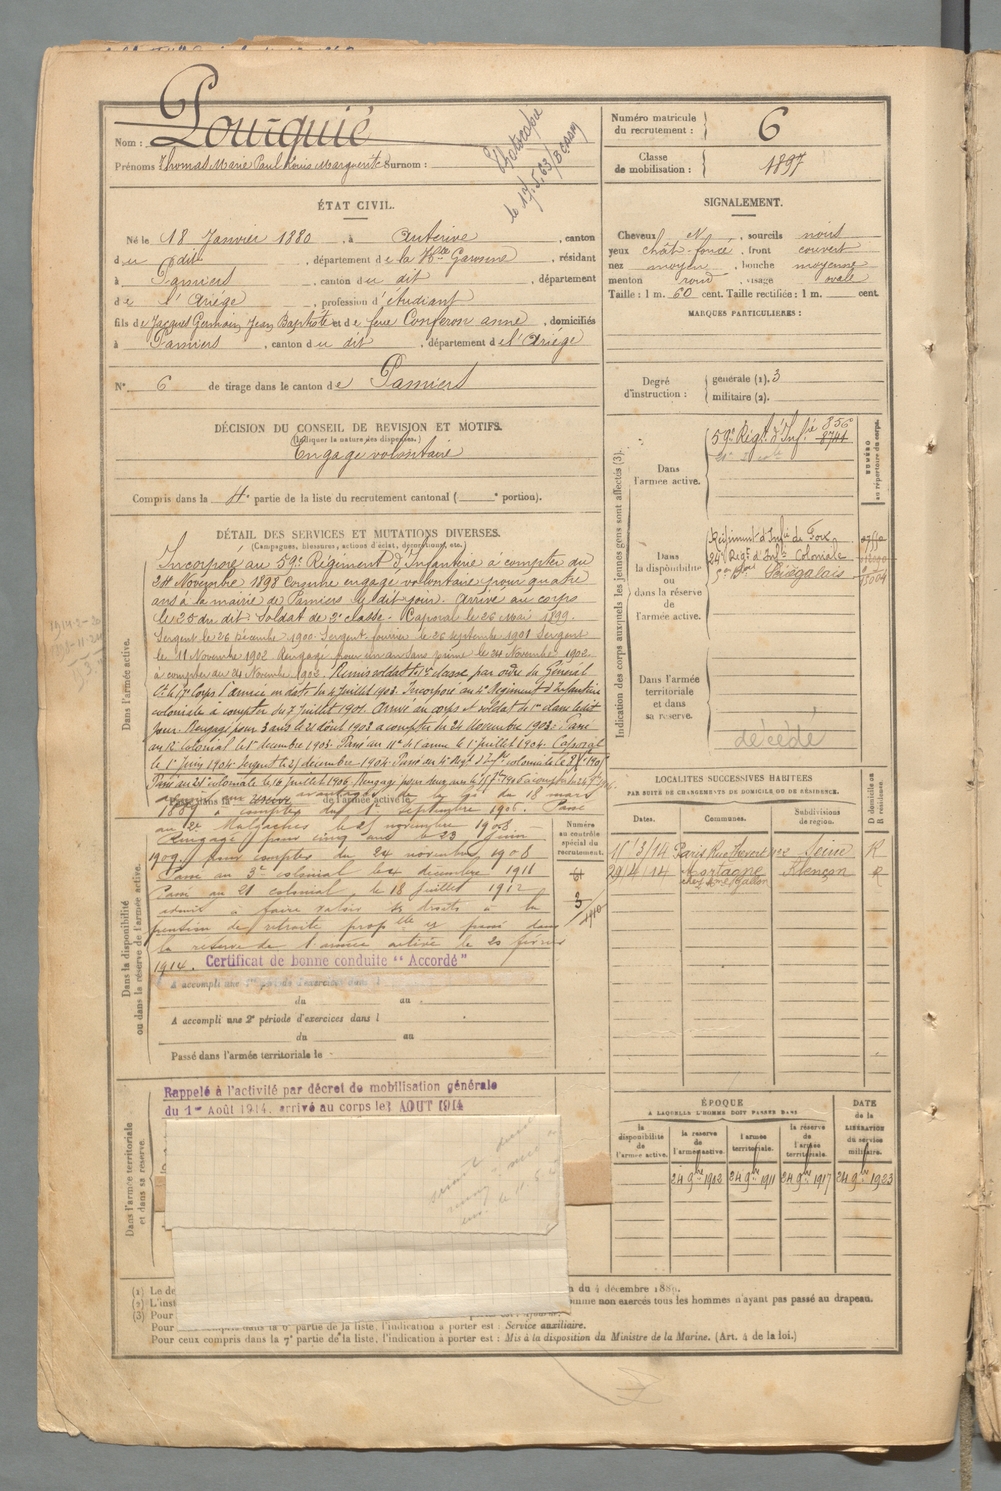 Nom : Pourquié
Prénoms : Thomas Marie Paul Louis Marguerite Surnom :
le 17.5.63
Numéro matricule du recrutement : 6
Classe de mobilisation : 1897
ÉTAT CIVIL.
Né le 18 Janvier 1880, à Auterive, canton
du dit, département de la Hte Garonne, résidant
à Pamiers, canton du dit, département
de l'Ariége, profession d'étudiant
fils de Jacques Germain Jean Baptiste et de feue Conferon anne, domiciliés
à Pamiers, canton du dit, département de l'Ariége
N° 6 de tirage dans le canton de Pamiers
SIGNALEMENT.
Cheveux et, sourcils noirs
yeux chât. foncé, front couvert
nez moyen, bouche moyenne
menton rond, visage ovale
Taille : 1 m. 60 cent. Taille rectifiée : 1 m. cent.
MARQUES PARTICULIERES :
Degré d'instruction : générale (1). 3
militaire (2).
DÉCISION DU CONSEIL DE REVISION ET MOTIFS.
(Indiquer la nature des dispenses.)
Engagé volontaire
Compris dans la 4e partie de la liste du recrutement cantonal ( e portion).
Indication des corps auxquels les jeunes gens sont affectés (3).
NUMÉRO au répertoire du corps.
Dans l'armée active.
59e Régt. d'Infie 856
8741
Dans la disponibilité ou dans la réserve de l'armée active.
Régiment d'Infie de Foix
24e Régt d'Infie Coloniale
5e Bon Sénégalais
15004
Dans l'armée territoriale et dans sa reserve.
décédé
DÉTAIL DES SERVICES ET MUTATIONS DIVERSES.
(Campagnes, blessures, actions d'éclat, décorations, etc.)
Dans l'armée active.
Incorporé au 59e Régiment d'Infanterie à compter du
24 Novembre 1898 Comme engagé volontaire pour quatre
ans à la mairie de Pamiers le dit jour. Arrivé au corps
le 25 du dit Soldat de 2e classe. Caporal le 26 Mai 1899.
Sergent le 26 Décembre 1900 Sergent fourrier le 26 septembre 1901 Sergent
le 11 Novembre 1902 Rengagé pour un an sans prime le 24 Novembre 1902
à compter du 24 Novembre 1902. Remis soldat de 1e classe par ordre du Général
Ct le 17e Corps d'armée en date du 4 Juillet 1903. Incorporé au 4e Régiment d'Infanterie
coloniale à compter du 7 juillet 1903. Arrivé au corps et soldat de 1e classe le dit
jour. Rengagé pour 3 ans le 21 août 1903 à compter du 24 novembre 1903. Passé
au 12e colonial le 1er décembre 1903. Passé au 11e de l'arme le 1er juillet 1904. Caporal
le 1er juin 1904 Sergent le 25 décembre 1904 Passé au 4e Régt d'Infie coloniale le
Passé au 21e coloniale le 16 juillet 1906. Rengagé pour deux ans
avantages de la loi du 18 mars
1889 à compter du 1er septembre 1906. Passé
Passé dans la réserve de l'armée active le
Dans la disponibilité ou dans la réserve de l'armée active.
au 2e Malgaches le 25 novembre 1908
Rengagé pour cinq ans le 23 Juin
1909 pour compter du 24 novembre 1908
Passé au 3e colonial le 4 décembre 1911
Passé au 21 colonial le 18 Juillet 1912
admis à faire valoir ses droits à la
pension de retraite proplle et passé dans
la réserve de l'armée active le 20 février
1914. Certificat de bonne conduite "Accordé"
A accompli une 1re période d'exercices dans l
du au
A accompli une 2e période d'exercices dans l
du au
Passé dans l'armée territoriale le
Numéro au contrôle spécial du recrutement.
61
3
1910
LOCALITES SUCCESSIVES HABITEES
PAR SUITE DE CHANGEMENTS DE DOMICILE OU DE RÉSIDENCE.
Dates. Communes. Subdivisions de région. D domicile ou R résidence.
15/3/14 Paris Seine R
29/4/14 Mortagne Alençon R
Dans l'armée territoriale et dans sa reserve.
Rappelé à l'activité par décret de mobilisation générale
du 1er Août 1914. arrivé au corps le 3 AOUT 1914
ÉPOQUE A LAQUELLE L'HOMME DOIT PASSER DANS
la disponibilité de l'armée active. la reserve de l'armée active. l'armée territoriale. la réserve de l'armée territoriale.
DATE de la LIBÉRATION du service militaire.
24 9bre 1902 24 9bre 1911 24 9bre 1917 24 9bre 1923
(1) Le de
(2) L'inst
(3) Pour
n du 4 décembre 1889.
omme non exercés tous les hommes n'ayant pas passé au drapeau.
Pour compris dans la 6e partie de la liste, l'indication à porter est : Service auxiliaire.
Pour ceux compris dans la 7e partie de la liste, l'indication à porter est : Mis à la disposition du Ministre de la Marine. (Art. 4 de la loi.)